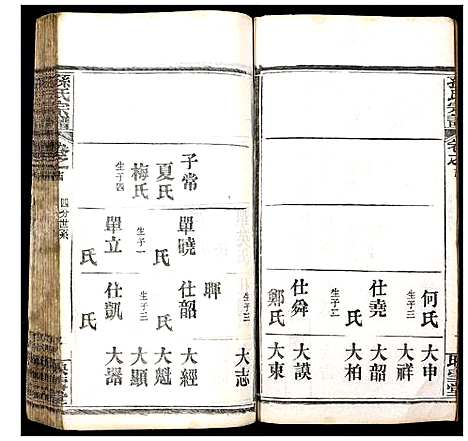 何氏
生子三
仕堯
氏
生子二
仕舜
鄭氏
大申
大祥
大韶
大柏
大謨
大東
子常
夏氏
梅氏
生子四
單曉
氏
單立
氏
生子一
暉
仕韶
生子三
仕凱
氏
大志
大經
大魁
大顯
大器
孫氏宗譜
四分世系